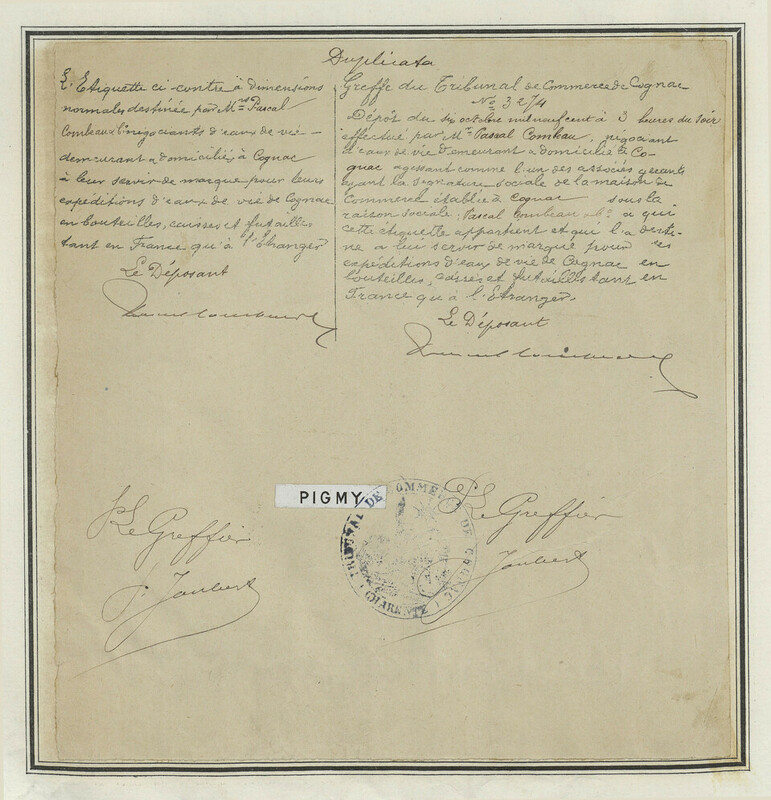 Duplicata
L'Etiquette ci-contre à dimensions
normales destinée par Mrs Pascal
Combeau & négociants d'eaux de vie -
demeurant & domiciliés à Cognac
à leur servir de marque pour leurs
expéditions d'eaux de vie de Cognac
en bouteilles, caisses et futailles
tant en France qu'à l'Etranger
Le Déposant
Greffe du Tribunal de Commerce de Cognac
No
Dépôt du six octobre mil neuf cent à 3 heures du soir
effectué par Mr Pascal Combeau, négociant
d'eaux de vie demeurant & domicilié à Co-
gnac agissant comme l'un des associés gérants
ayant la signature sociale de la maison de
Commerce établie à Cognac sous la
raison sociale: Pascal Combeau & à qui
cette étiquette appartient et qui l'a desti-
née à leur servir de marque pour ses
expéditions d'eaux de vie de Cognac en
bouteilles, caisses et futailles tant en
France qu'à l'Etranger.
Le Déposant
PIGMY
TRIBUNAL DE COMMERCE DE COGNAC
(CHARENTE)
Le Greffier
Joubert
Le Greffier
Joubert